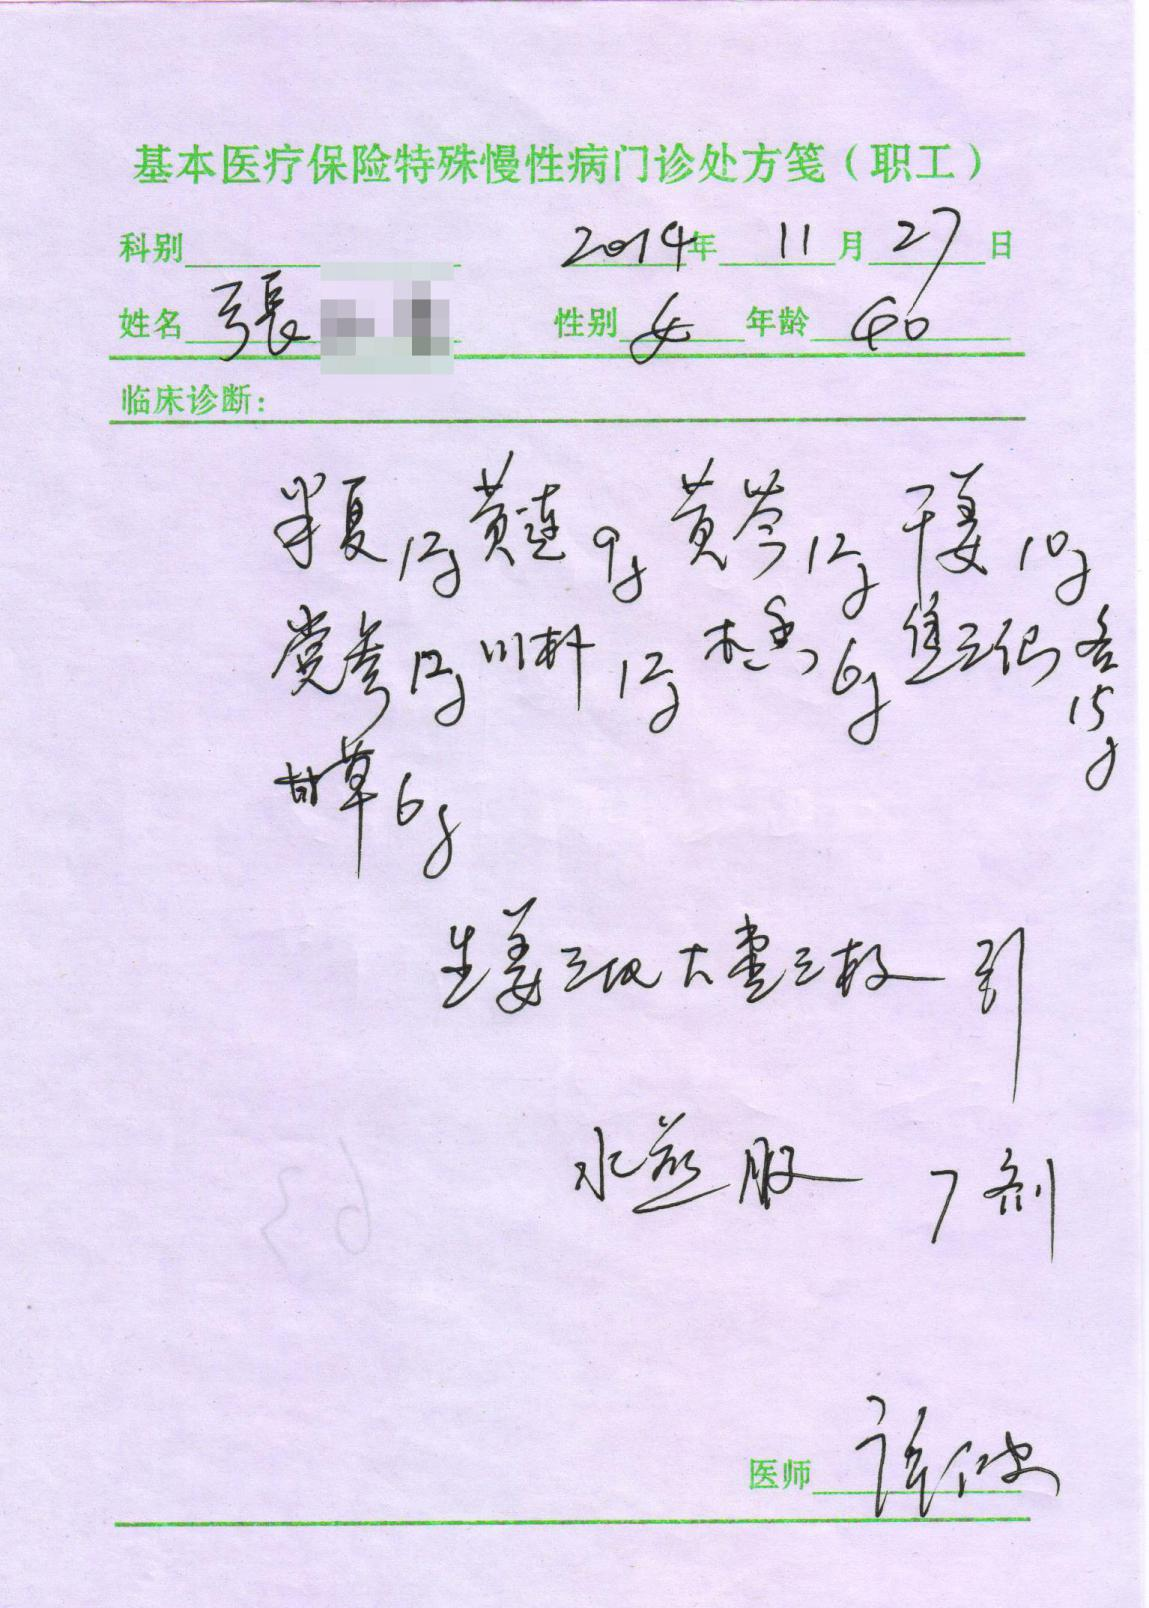 基本医疗保险特殊慢性病门诊处方笺（职工）
科别 2014年 11月 27日
姓名 張 性别 女 年龄 40
临床诊断：
半夏12g 黄连9g 黄芩12g 干姜10g
党参12g 川朴12g 木香6g 焦三仙各15g
甘草6g
生姜三块 大枣三枚 引
水煎服 7剂
医师